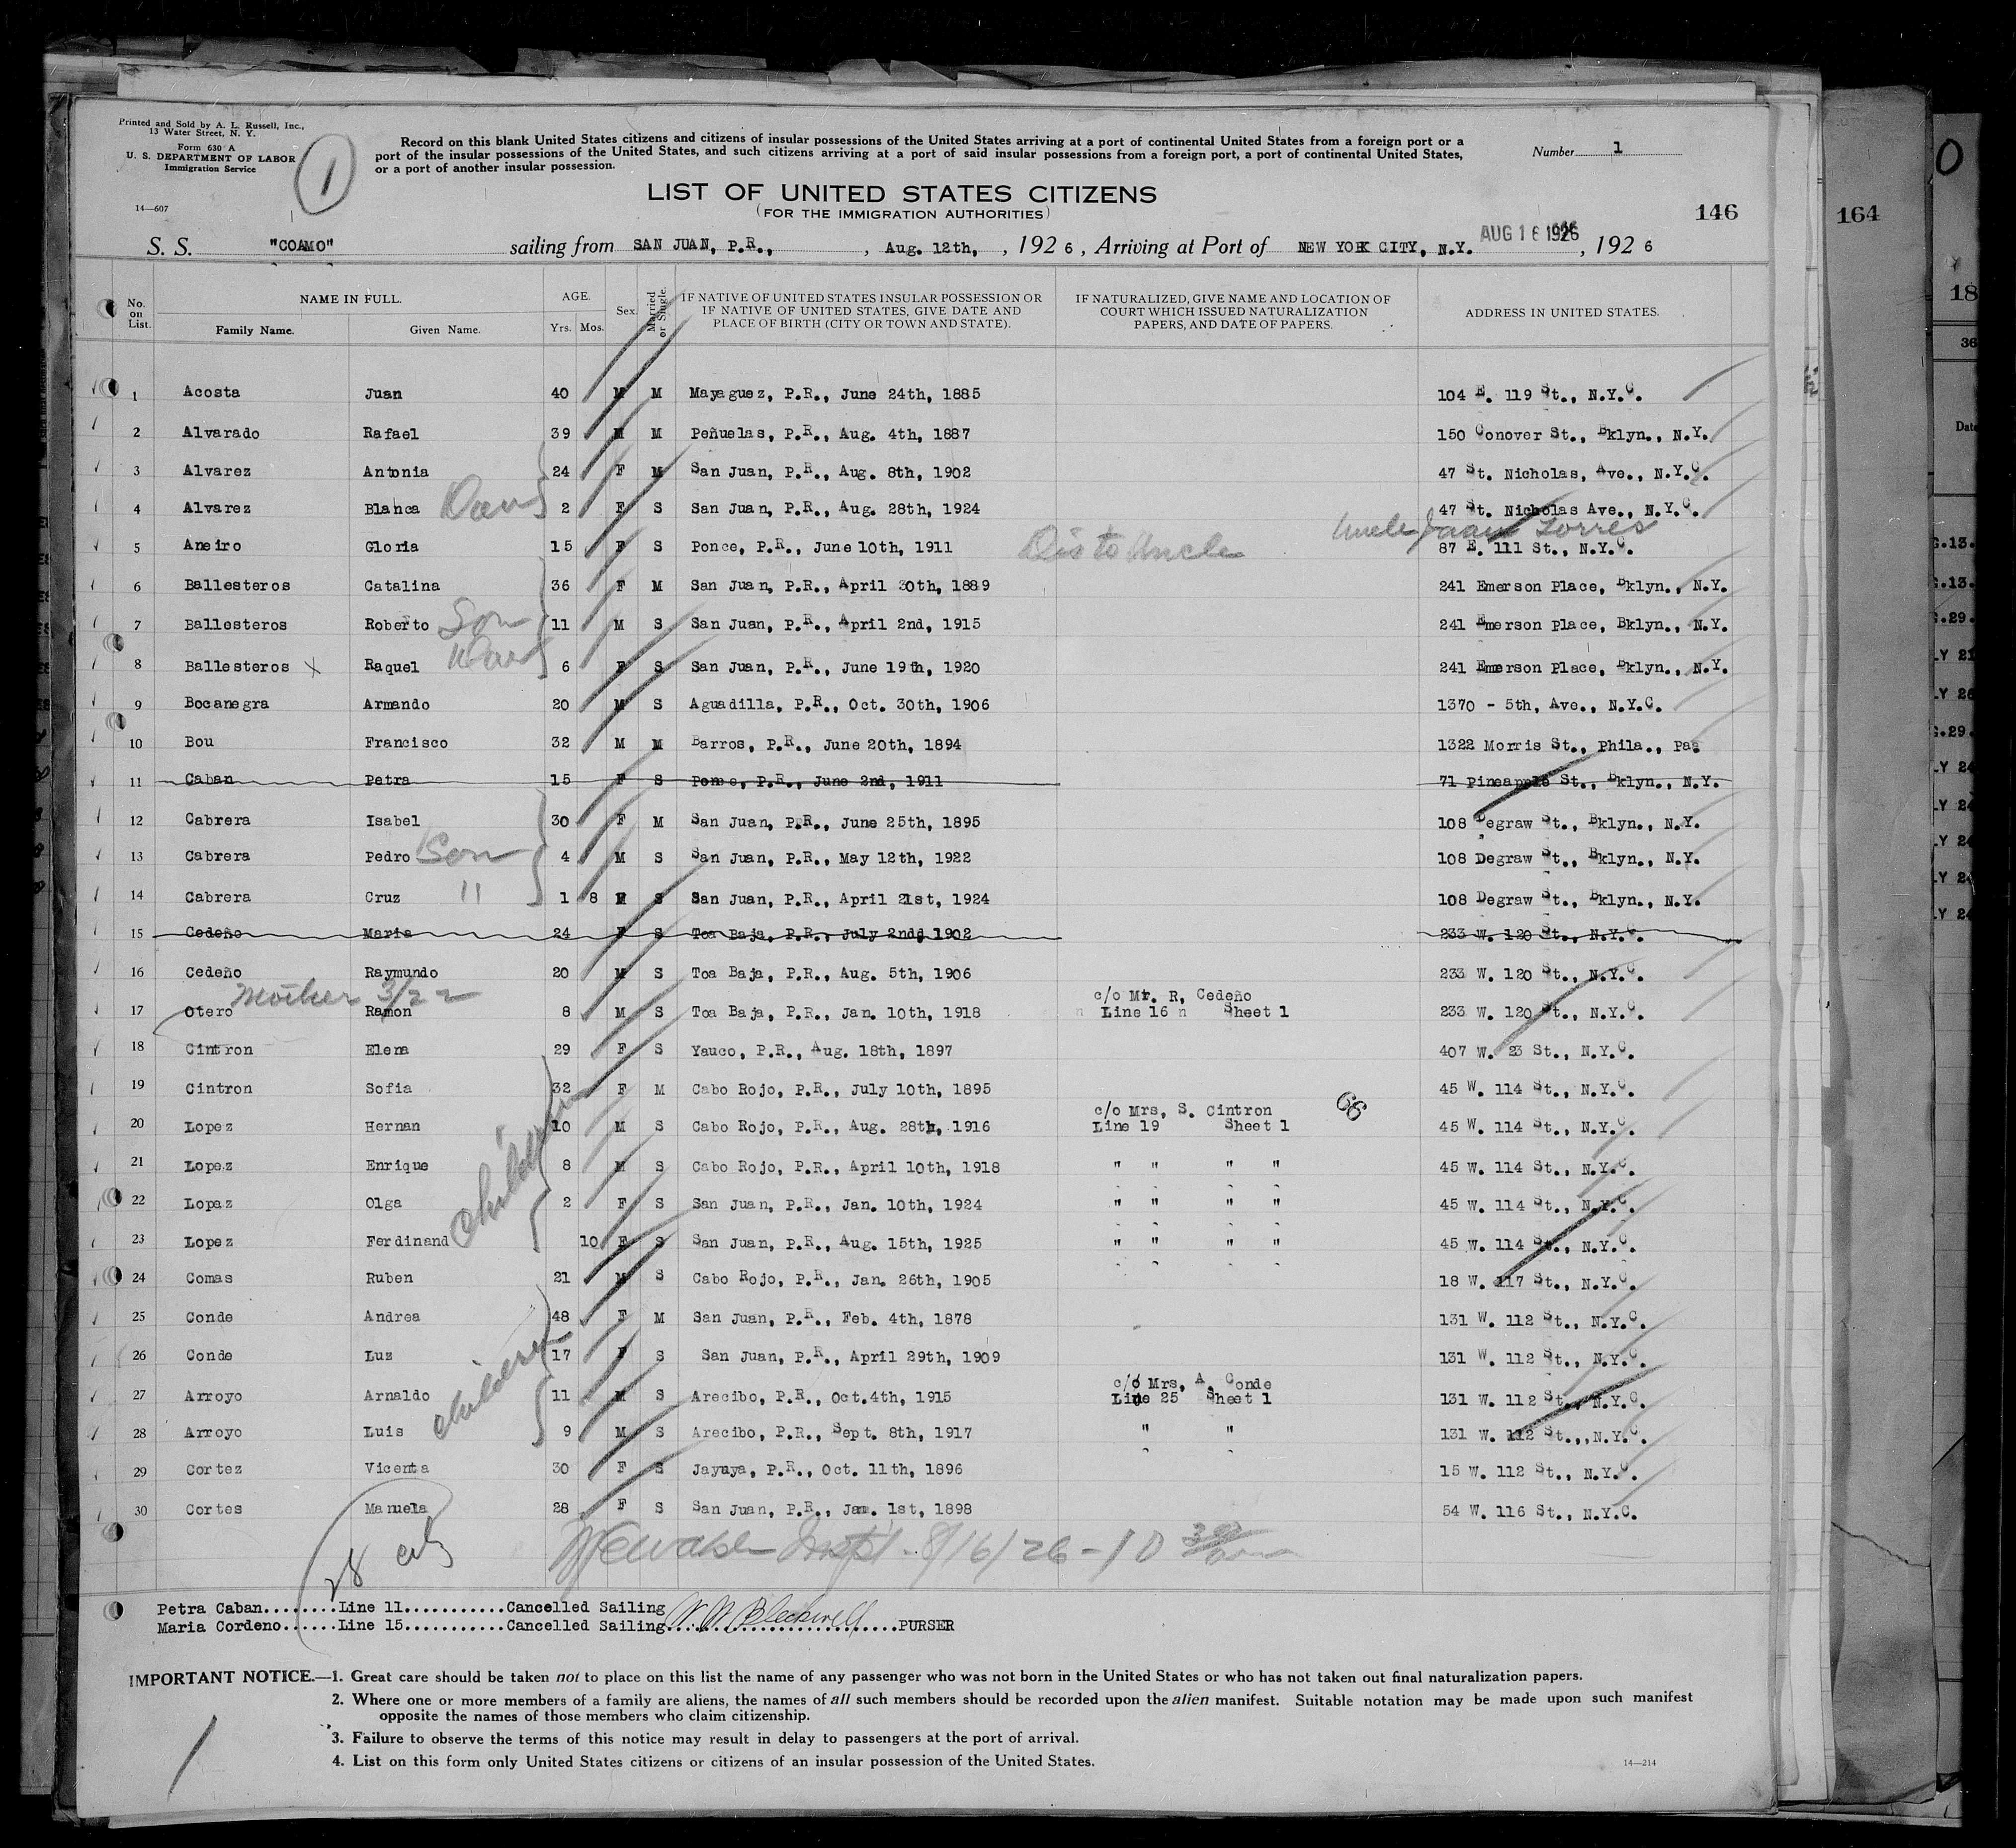 Printed and Sold by A. L. Russell, Inc.,
13 Water Street, N. Y.
Form 630 A
U. S. DEPARTMENT OF LABOR
Immigration Service
14—607
1
Record on this blank United States citizens and citizens of insular possessions of the United States arriving at a port of continental United States from a foreign port or a
port of the insular possessions of the United States, and such citizens arriving at a port of said insular possessions from a foreign port, a port of continental United States,
or a port of another insular possession.
Number 1
LIST OF UNITED STATES CITIZENS
(FOR THE IMMIGRATION AUTHORITIES)
146
164
S. S. "COAMO" sailing from SAN JUAN, P.R., , Aug. 12th, , 1926 , Arriving at Port of NEW YORK CITY, N.Y. AUG 16 1926 , 1926
No. on List. NAME IN FULL. AGE. Sex. Married or Single. IF NATIVE OF UNITED STATES INSULAR POSSESSION OR IF NATIVE OF UNITED STATES, GIVE DATE AND PLACE OF BIRTH (CITY OR TOWN AND STATE). IF NATURALIZED, GIVE NAME AND LOCATION OF COURT WHICH ISSUED NATURALIZATION PAPERS, AND DATE OF PAPERS. ADDRESS IN UNITED STATES.
Family Name. Given Name. Yrs. Mos.
1 Acosta Juan 40 M M Mayaguez, P.R., June 24th, 1885 104 E. 119 St., N.Y.C.
2 Alvarado Rafael 39 M M Peñuelas, P.R., Aug. 4th, 1887 150 Conover St., Bklyn., N.Y.
3 Alvarez Antonia 24 F M San Juan, P.R., Aug. 8th, 1902 47 St. Nicholas, Ave., N.Y.C.
4 Alvarez Blanca Dau 2 F S San Juan, P.R., Aug. 28th, 1924 47 St. Nicholas Ave., N.Y.C.
Dis to Uncle Uncle Juan Torres
5 Aneiro Gloria 15 F S Ponce, P.R., June 10th, 1911 87 E. 111 St., N.Y.C.
6 Ballesteros Catalina 36 F M San Juan, P.R., April 30th, 1889 241 Emerson Place, Bklyn., N.Y.
7 Ballesteros Roberto Son 11 M S San Juan, P.R., April 2nd, 1915 241 Emerson Place, Bklyn., N.Y.
8 Ballesteros X Raquel Dau 6 F S San Juan, P.R., June 19th, 1920 241 Emerson Place, Bklyn., N.Y.
9 Bocanegra Armando 20 M S Aguadilla, P.R., Oct. 30th, 1906 1370 - 5th, Ave., N.Y.C.
10 Bou Francisco 32 M M Barros, P.R., June 20th, 1894 1322 Morris St., Phila., Pa.
11 Caban Petra 15 F S Ponce, P.R., June 2nd, 1911 71 Pineapple St., Bklyn., N.Y.
12 Cabrera Isabel 30 F M San Juan, P.R., June 25th, 1895 108 Degraw St., Bklyn., N.Y.
13 Cabrera Pedro Son 4 M S San Juan, P.R., May 12th, 1922 108 Degraw St., Bklyn., N.Y.
14 Cabrera Cruz 11 1 8 M S San Juan, P.R., April 21st, 1924 108 Degraw St., Bklyn., N.Y.
15 Cedeño Maria 24 F S Toa Baja, P.R., July 2nd, 1902 233 W. 120 St., N.Y.C.
16 Cedeño Raymundo 20 M S Toa Baja, P.R., Aug. 5th, 1906 233 W. 120 St., N.Y.C.
Mother 3/22 c/o Mr. R, Cedeño
17 Otero Ramon 8 M S Toa Baja, P.R., Jan. 10th, 1918 Line 16 Sheet 1 233 W. 120 St., N.Y.C.
18 Cintron Elena 29 F S Yauco, P.R., Aug. 18th, 1897 407 W. 23 St., N.Y.C.
19 Cintron Sofia 32 F M Cabo Rojo, P.R., July 10th, 1895 45 W. 114 St., N.Y.C.
children c/o Mrs, S. Cintron 66
20 Lopez Hernan 10 M S Cabo Rojo, P.R., Aug. 28th, 1916 Line 19 Sheet 1 45 W. 114 St., N.Y.C.
21 Lopez Enrique 8 M S Cabo Rojo, P.R., April 10th, 1918 " " " " 45 W. 114 St., N.Y.C.
22 Lopez Olga 2 F S San Juan, P.R., Jan. 10th, 1924 " " " " 45 W. 114 St., N.Y.C.
23 Lopez Ferdinand 10 F S San Juan, P.R., Aug. 15th, 1925 " " " " 45 W. 114 St., N.Y.C.
24 Comas Ruben 21 M S Cabo Rojo, P.R., Jan. 26th, 1905 18 W. 117 St., N.Y.C.
25 Conde Andrea 48 F M San Juan, P.R., Feb. 4th, 1878 131 W. 112 St., N.Y.C.
26 Conde Luz 17 F S San Juan, P.R., April 29th, 1909 131 W. 112 St., N.Y.C.
children c/o Mrs, A. Conde
27 Arroyo Arnaldo 11 M S Arecibo, P.R., Oct.4th, 1915 Line 25 Sheet 1 131 W. 112 St., N.Y.C.
28 Arroyo Luis 9 M S Arecibo, P.R., Sept. 8th, 1917 " " 131 W. 112 St.,,N.Y.C.
29 Cortez Vicenta 30 F S Jayuya, P.R., Oct. 11th, 1896 15 W. 112 St., N.Y.C.
30 Cortes Manuela 28 F S San Juan, P.R., Jan. 1st, 1898 54 W. 116 St., N.Y.C.
28 cits Inspt. 8/16/26 - 10 30
Petra Caban........Line 11...........Cancelled Sailing
Maria Cordeno......Line 15...........Cancelled Sailing W. W. Blackwell PURSER
IMPORTANT NOTICE.—1. Great care should be taken not to place on this list the name of any passenger who was not born in the United States or who has not taken out final naturalization papers.
2. Where one or more members of a family are aliens, the names of all such members should be recorded upon the alien manifest. Suitable notation may be made upon such manifest
opposite the names of those members who claim citizenship.
3. Failure to observe the terms of this notice may result in delay to passengers at the port of arrival.
4. List on this form only United States citizens or citizens of an insular possession of the United States.
14—214